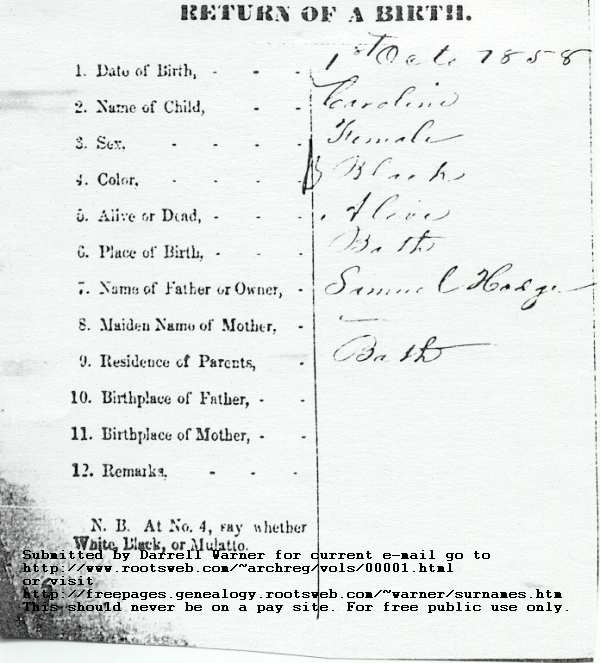 RETURN OF A BIRTH.
1. Date of Birth, - - - 1st Octo 1858
2. Name of Child, - - Caroline
3. Sex, - - - - Female
4. Color, - - - - Black
5. Alive or Dead, - - - Alive
6. Place of Birth, - - - Bath
7. Name of Father or Owner, - Samuel Hodge
8. Maiden Name of Mother, - —
9. Residence of Parents, - Bath
10. Birthplace of Father, - -
11. Birthplace of Mother, - -
12. Remarks, - - -
N. B. At No. 4, say whether
White, Black, or Mulatto.
Submitted by Darrell Warner for current e-mail go to
http://www.rootsweb.com/~archreg/vols/00001.html
or visit
http://freepages.genealogy.rootsweb.com/~warner/surnames.htm
This should never be on a pay site. For free public use only.